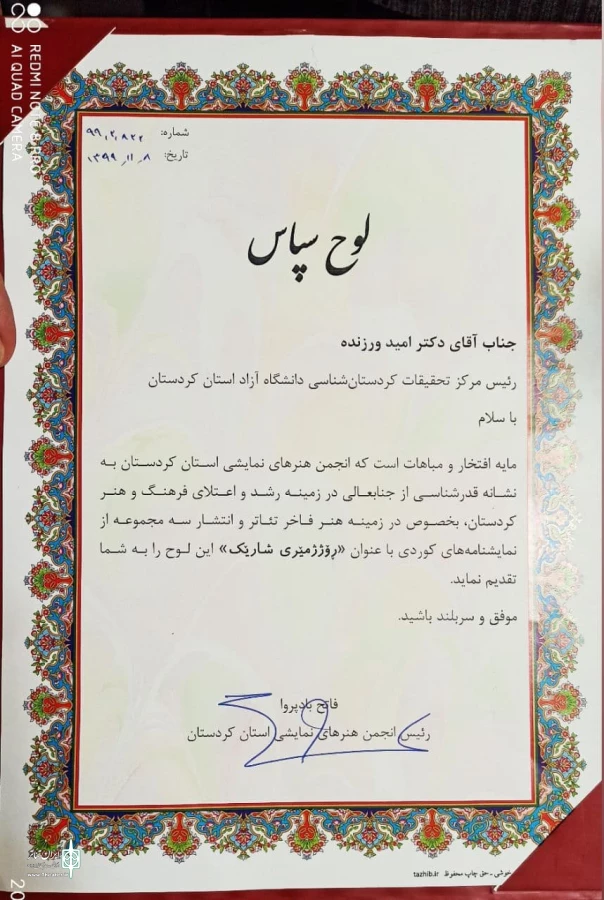 REDMI NOTE 8 PRO
AI QUAD CAMERA
شماره: ۹۹,۲,۸۲۲
تاریخ: ۱۳۹۹,۱۱,۸
لوح سپاس
جناب آقای دکتر امید ورزنده
رئیس مرکز تحقیقات کردستان‌شناسی دانشگاه آزاد استان کردستان
با سلام
مایه افتخار و مباهات است که انجمن هنرهای نمایشی استان کردستان به
نشانه قدرشناسی از جنابعالی در زمینه رشد و اعتلای فرهنگ و هنر
کردستان، بخصوص در زمینه هنر فاخر تئاتر و انتشار سه مجموعه از
نمایشنامه‌های کوردی با عنوان «رۆژژمێری شارێک» این لوح را به شما
تقدیم نماید.
موفق و سربلند باشید.
فاتح بادپروا
رئیس انجمن هنرهای نمایشی استان کردستان
خوشی - حق چاپ محفوظ tazhib.ir
ایران تئاتر
20